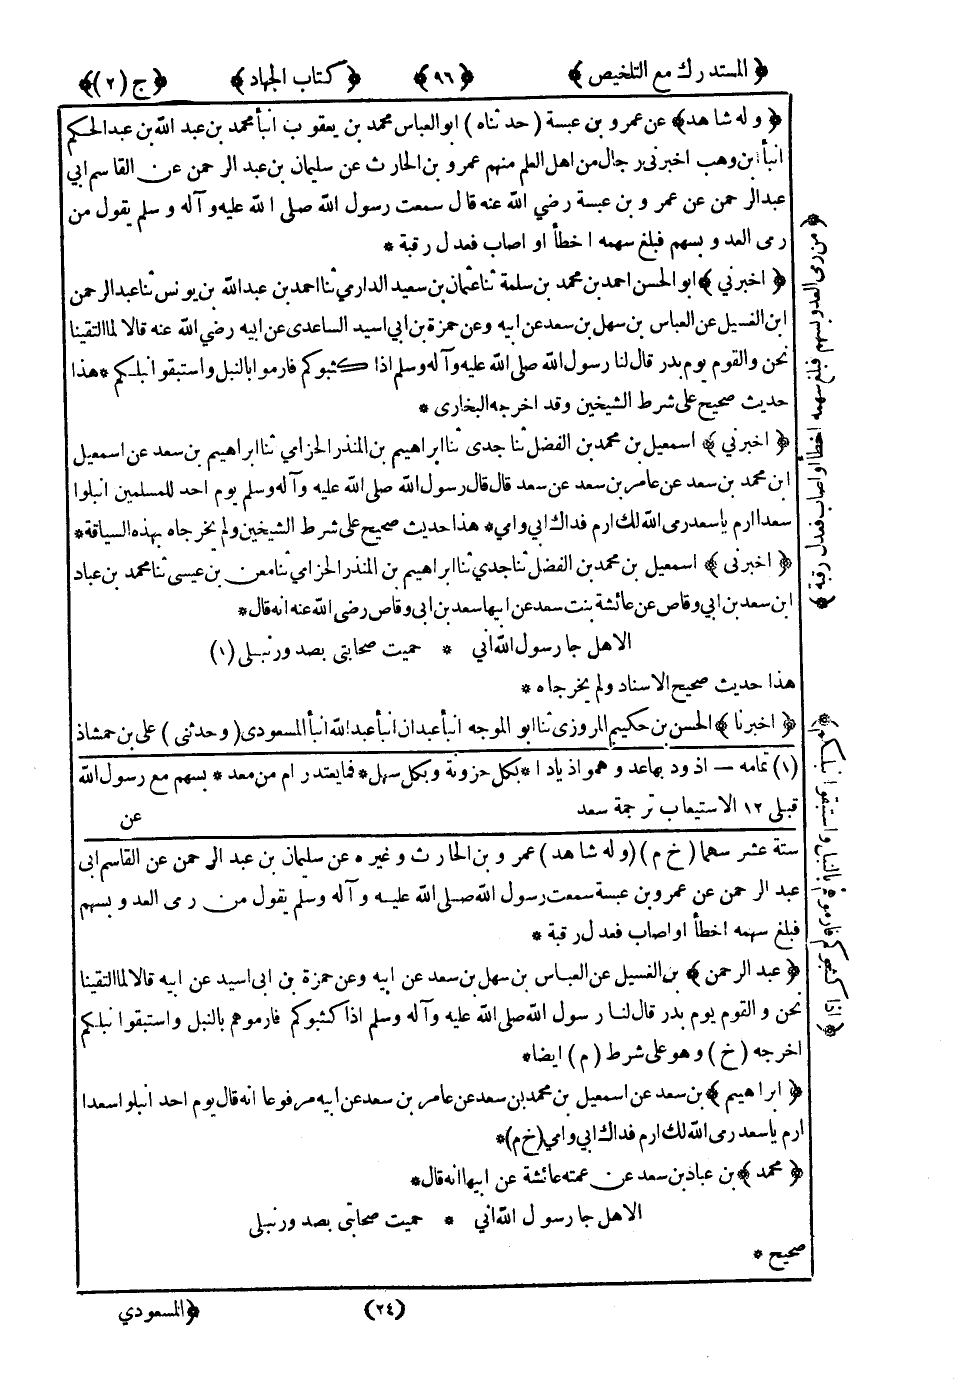 ﴿ المستدرك مع التلخيص ﴾ ﴿ ٩٦ ﴾ ﴿ كتاب الجهاد ﴾ ﴿ ج (٢) ﴾
﴿ وله شاهد ﴾ عن عمرو بن عبسة (حدثناه) ابو العباس محمد بن يعقوب انبأ محمد بن عبد الله بن عبد الحكم
انبأ ابن وهب اخبرنى رجال من اهل العلم منهم عمرو بن الحارث عن سليمان بن عبد الرحمن عن القاسم ابى
عبد الرحمن عن عمرو بن عبسة رضي الله عنه قال سمعت رسول الله صلى الله عليه وآله وسلم يقول من
رمى العدو بسهم فبلغ سهمه اخطأ او اصاب فعدل رقبة *
﴿ اخبرني ﴾ ابو الحسن احمد بن محمد بن سلمة ثنا عثمان بن سعيد الدارمي ثنا احمد بن عبد الله بن يونس ثنا عبد الرحمن
ابن الغسيل عن العباس بن سهل بن سعد عن ابيه وعن حمزة بن ابي اسيد الساعدى عن ابيه رضي الله عنه قالا لما التقينا
نحن والقوم يوم بدر قال لنا رسول الله صلى الله عليه وآله وسلم اذا كثبوكم فارموا بالنبل واستبقوا نبلكم * هذا
حديث صحيح على شرط الشيخين وقد اخرجه البخارى *
﴿ اخبرني ﴾ اسمعيل بن محمد بن الفضل ثنا جدى ثنا ابراهيم بن المنذر الحزامي ثنا ابراهيم بن سعد عن اسمعيل
ابن محمد بن سعد عن عامر بن سعد عن سعد قال قال رسول الله صلى الله عليه وآله وسلم يوم احد للمسلمين انبلوا
سعدا ارم يا سعد رمى الله لك ارم فداك ابي وامي * هذا حديث صحيح على شرط الشيخين ولم يخرجاه بهذه السياقة *
﴿ اخبرنى ﴾ اسمعيل بن محمد بن الفضل ثنا جدي ثنا ابراهيم بن المنذر الحزامي ثنا معن بن عيسى ثنا محمد بن عباد
ابن سعد بن ابي وقاص عن عائشة بنت سعد عن ابيها سعد بن ابى وقاص رضى الله عنه انه قال *
الا هل جا رسول الله اني * حميت صحابتي بصدور نبلى (١)
هذا حديث صحيح الاسناد ولم يخرجاه *
﴿ اخبرنا ﴾ الحسن بن حكيم المروزى ثنا ابو الموجه انبأ عبدان انبأ عبد الله انبأ المسعودى (وحدثنى) على بن حمشاذ
(١) تمامه — اذود بها عدوهم واذيادا * بكل حزونة وبكل سهل * فما يعتد رام من معد * بسهم مع رسول الله
قبلى ١٢ الاستيعاب ترجمة سعد
عن
ستة عشر سهما (خ م) (وله شاهد) عمرو بن الحارث وغيره عن سليمان بن عبد الرحمن عن القاسم ابى
عبد الرحمن عن عمرو بن عبسة سمعت رسول الله صلى الله عليه وآله وسلم يقول من رمى العدو بسهم
فبلغ سهمه اخطأ او اصاب فعدل رقبة *
﴿ عبد الرحمن ﴾ بن الغسيل عن العباس بن سهل بن سعد عن ابيه وعن حمزة بن ابى اسيد عن ابيه قالا لما التقينا
نحن والقوم يوم بدر قال لنا رسول الله صلى الله عليه وآله وسلم اذا كثبوكم فارموهم بالنبل واستبقوا نبلكم
اخرجه (خ) وهو على شرط (م) ايضا *
﴿ ابراهيم ﴾ بن سعد عن اسمعيل بن محمد بن سعد عن عامر بن سعد عن ابيه مرفوعا انه قال يوم احد انبلوا سعدا
ارم يا سعد رمى الله لك ارم فداك ابي وامي (خ م) *
﴿ محمد ﴾ بن عباد بن سعد عن عمته عائشة عن ابيها انه قال *
الا هل جا رسول الله اني * حميت صحابتى بصدور نبلى
صحيح *
﴿ من رمى العدو بسهم فبلغ سهمه اخطأ او اصاب فعدل رقبة ﴾
﴿ اذا كثبوكم فارموهم بالنبل واستبقوا نبلكم ﴾
(٢٤)
﴿ المسعودي